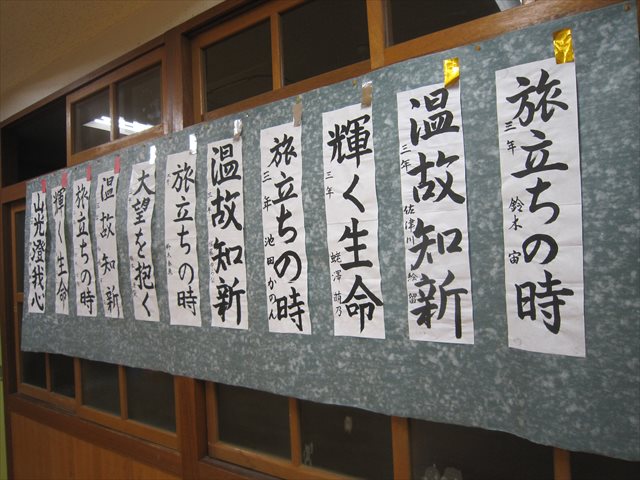 旅立ちの時
三年 鈴木 宙
温故知新
三年 佐津川 絵留
輝く生命
三年 蛯澤 萌乃
旅立ちの時
三年 池田かのん
温故知新
旅立ちの時
大望を抱く
温故知新
旅立ちの時
輝く生命
山光澄我心